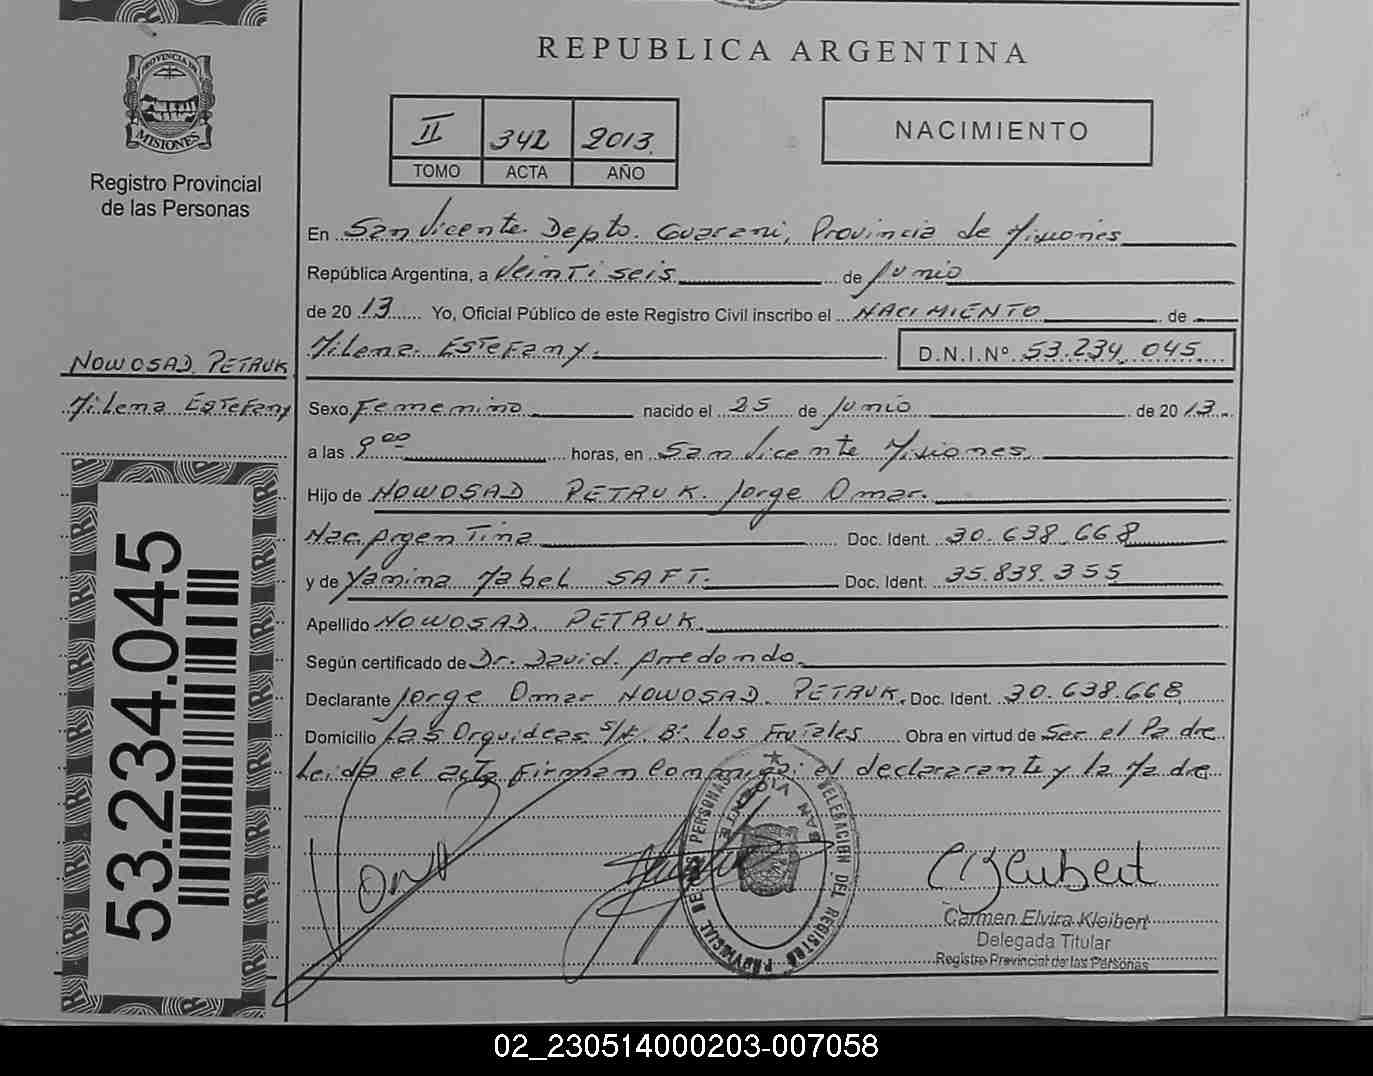 PROVINCIA DE
MISIONES
Registro Provincial
de las Personas
NOWOSAD PETRUK
Milena ESTEFany
53.234.045
REPUBLICA ARGENTINA
II 342 2013
TOMO ACTA AÑO
NACIMIENTO
En San Vicente. Depto. Guarani, Provincia de Misiones
República Argentina, a Veintiseis de Junio
de 2013 Yo, Oficial Público de este Registro Civil inscribo el NACIMIENTO de
Milena ESTEFany. D.N.I.Nº 53.234.045
Sexo Femenino nacido el 25 de Junio de 2013.
a las 9 00 horas, en San Vicente Misiones
Hijo de NOWOSAD PETRUK. Jorge Omar.
Nac. Argentina Doc. Ident. 30.638.668
y de Yanina Mabel SAFT. Doc. Ident. 35.839.355
Apellido NOWOSAD. PETRUK.
Según certificado de Dr. David. Arredondo.
Declarante Jorge Omar NOWOSAD. PETRUK. Doc. Ident. 30.638.668
Domicilio Las Orquideas S/N. Bº Los Frutales Obra en virtud de Ser el Padre
Leida el acta Firman Conmigo: el declararante y la Madre
DELEGACION DEL REGISTRO PROVINCIAL DE LAS PERSONAS
SAN VICENTE
CKleibert
Carmen Elvira Kleibert
Delegada Titular
Registro Provincial de las Personas
02_230514000203-007058